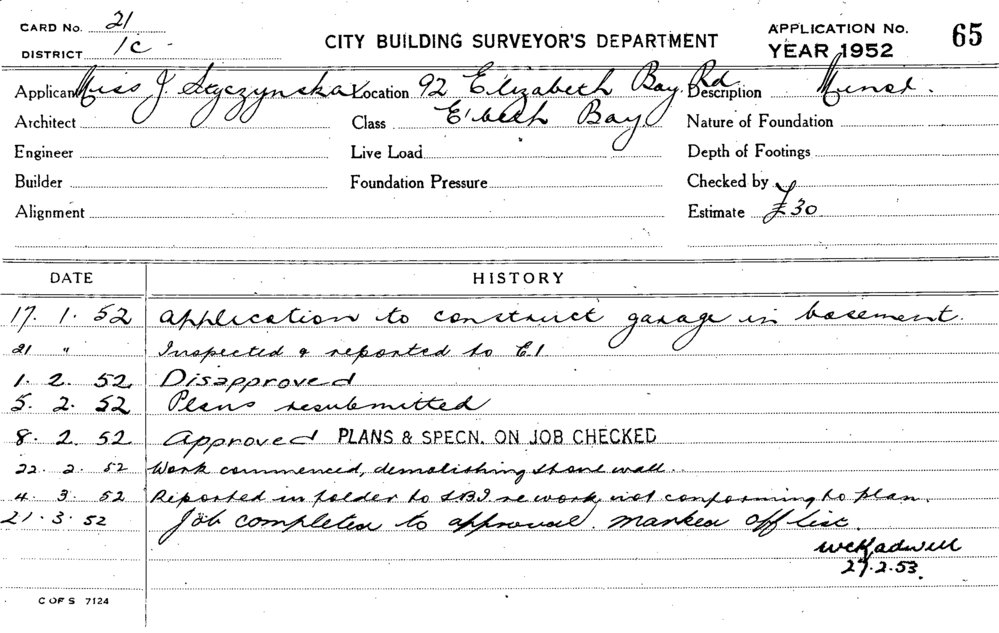 CARD No. 21
DISTRICT 1C
CITY BUILDING SURVEYOR'S DEPARTMENT
APPLICATION No. 65
YEAR 1952
Applicant Miss J Styczynska Location 92 Elizabeth Bay Rd Description
Architect Class E'beth Bay Nature of Foundation
Engineer Live Load Depth of Footings
Builder Foundation Pressure Checked by
Alignment Estimate £30
DATE HISTORY
17. 1. 52 Application to construct garage in basement.
21 " Inspected & reported to E1
1. 2. 52 Disapproved
5. 2. 52 Plans resubmitted
8. 2. 52 Approved PLANS & SPECN. ON JOB CHECKED
22. 2. 52 Work commenced, demolishing stone wall.
4. 3. 52 Reported in folder to SBI re work not conforming to plan.
21. 3. 52 Job completed to approval. marked off list.
27.2.53.
C OF S 7124